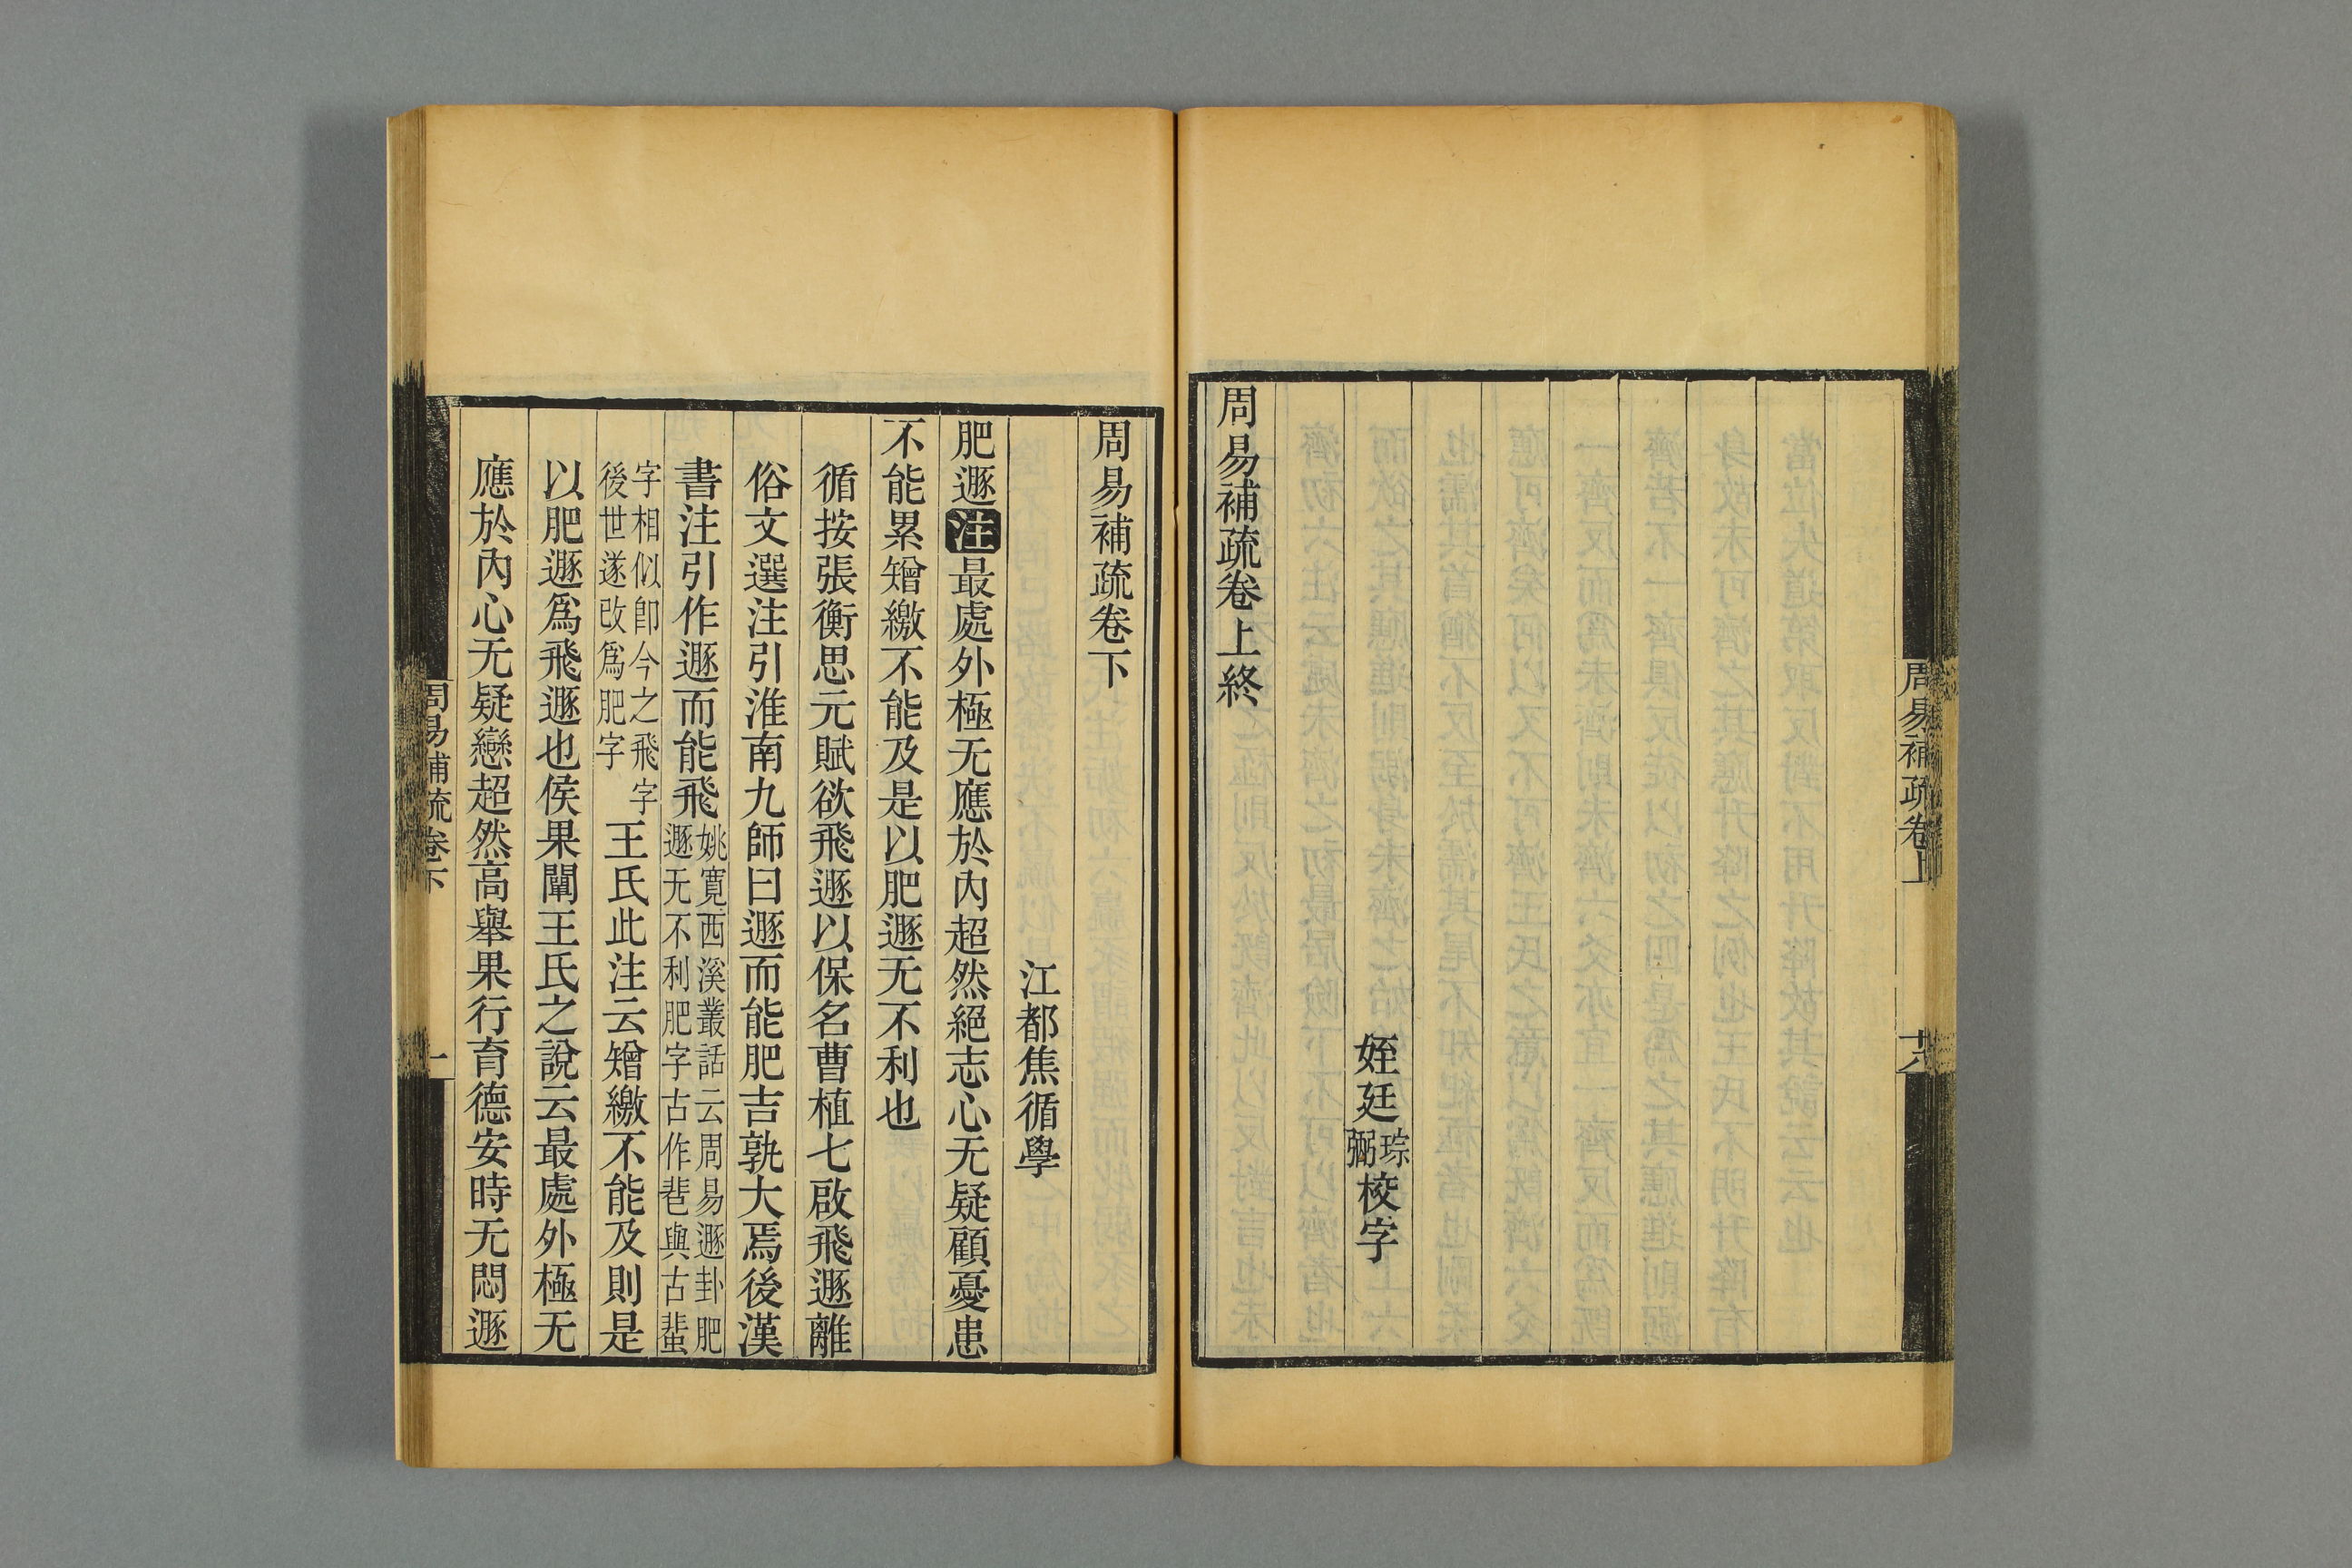 周易補疏卷上
十六
姪廷琮
弼校字
周易補疏卷上終
周易補疏卷下
江都焦循學
肥遯注最處外極无應於內超然絕志心无疑顧憂患
不能累矰繳不能及是以肥遯无不利也
循按張衡思元賦欲飛遯以保名曹植七啟飛遯離
俗文選注引淮南九師曰遯而能肥吉孰大焉後漢
書注引作遯而能飛姚寬西溪叢話云周易遯卦肥
遯无不利肥字古作䩇與古蜚
字相似即今之飛字
後世遂改爲肥字王氏此注云矰繳不能及則是
以肥遯爲飛遯也侯果闡王氏之說云最處外極无
應於內心无疑戀超然高舉果行育德安時无悶遯
周易補疏卷下
一